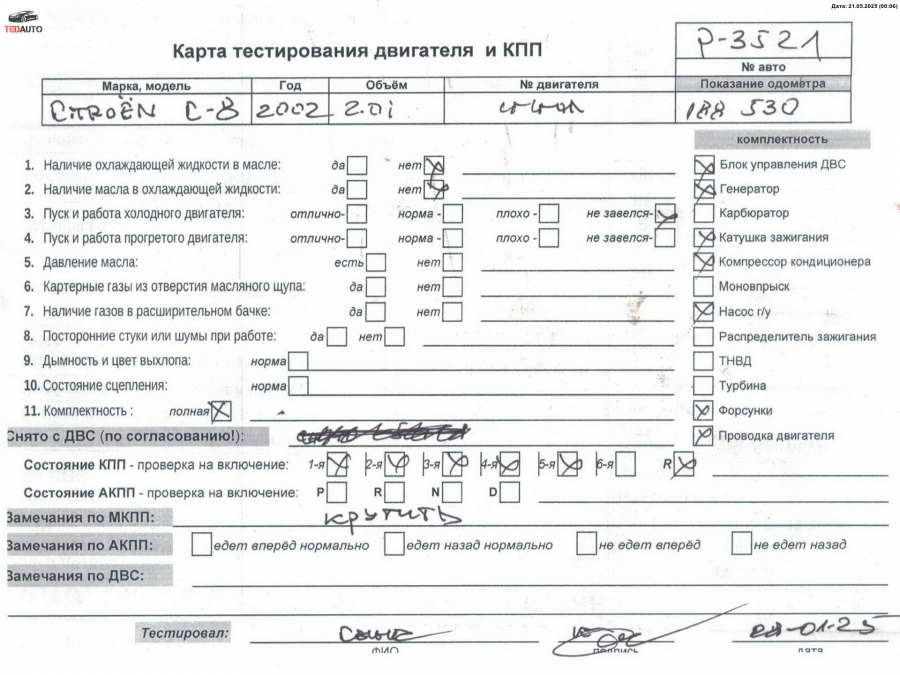 Дата: 21.05.2025 (00:06)
TEDAUTO
Карта тестирования двигателя и КПП
P-3521
№ авто
Марка, модель Год Объём № двигателя Показание одометра
CITROËN C-8 2002 2.0i 188 530
комплектность
1. Наличие охлаждающей жидкости в масле: да нет Блок управления ДВС
2. Наличие масла в охлаждающей жидкости: да нет Генератор
3. Пуск и работа холодного двигателя: отлично- норма - плохо - не завелся- Карбюратор
4. Пуск и работа прогретого двигателя: отлично- норма - плохо - не завелся- Катушка зажигания
5. Давление масла: есть нет Компрессор кондиционера
6. Картерные газы из отверстия масляного щупа: да нет Моновпрыск
7. Наличие газов в расширительном бачке: да нет Насос г/у
8. Посторонние стуки или шумы при работе: да нет Распределитель зажигания
9. Дымность и цвет выхлопа: норма ТНВД
10. Состояние сцепления: норма Турбина
11. Комплектность : полная Форсунки
Снято с ДВС (по согласованию!): Проводка двигателя
Состояние КПП - проверка на включение: 1-я 2-я 3-я 4-я 5-я 6-я R
Состояние АКПП - проверка на включение: P R N D
Замечания по МКПП: крутить
Замечания по АКПП: едет вперёд нормально едет назад нормально не едет вперёд не едет назад
Замечания по ДВС:
Тестировал: 01-25
ФИО подпись дата